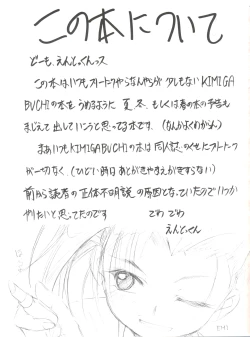 この本について
どーも、えんどっくんっス
この本はいつもフリートークやらなんやらが少しもないKIMIGA
BUCHIの本をうめるように夏、冬、もしくは春の本の予告も
まじえて出していこうと思ってる本です、(なんかよくわからん)
まあいつもKIMIGABUCHIの本は同人誌のくせにフリートーク
が一切なく、(ひどい時日あとがきやまえがきすらない)
前から読者の正体不明説の原因となっていたのでいつか
やりたいと思ってたのです でわでわ